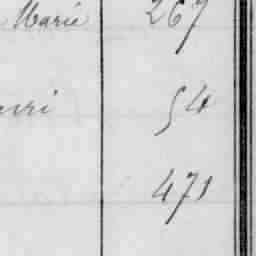 Marie 267
54
471